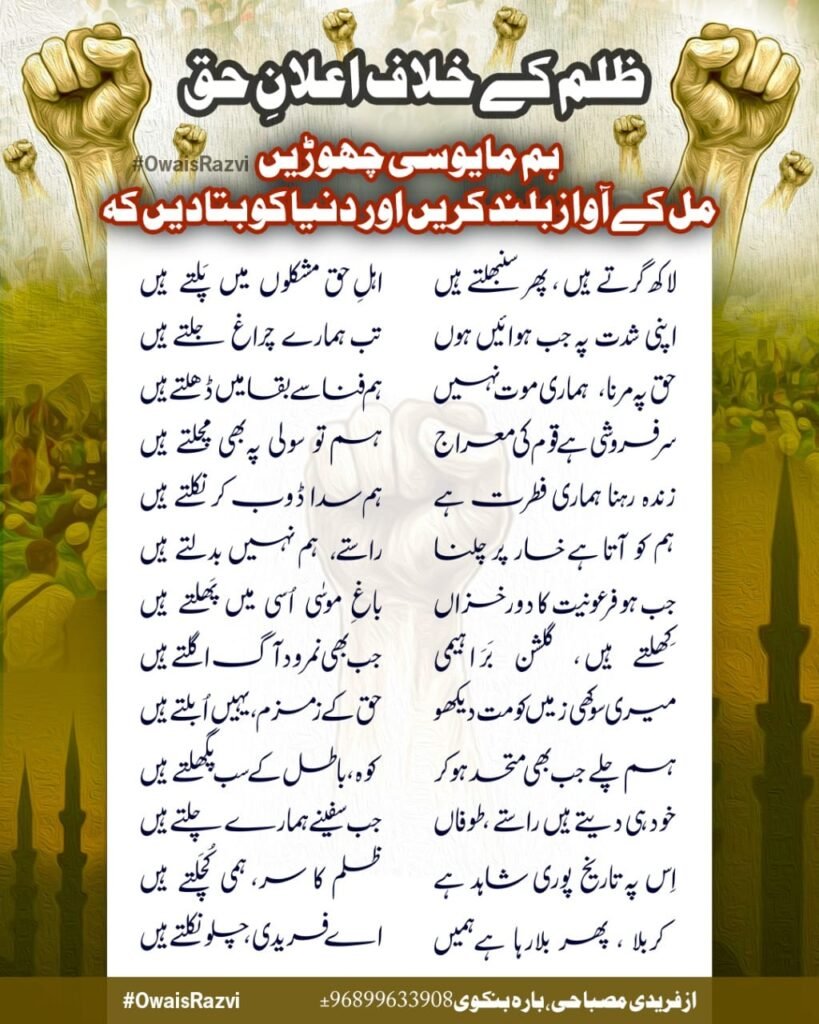 ظلم کے خلاف اعلانِ حق
#OwaisRazvi
ہم مایوسی چھوڑیں
مل کے آواز بلند کریں اور دنیا کو بتا دیں کہ
لاکھ گرتے ہیں، پھر سنبھلتے ہیں اہلِ حق مشکلوں میں پَلتے ہیں
اپنی شدت پہ جب ہوائیں ہوں تب ہمارے چراغ جلتے ہیں
حق پہ مرنا، ہماری موت نہیں ہم فنا سے بقا میں ڈھلتے ہیں
سرفروشی ہے قوم کی معراج ہم تو سولی پہ بھی مچلتے ہیں
زندہ رہنا ہماری فطرت ہے ہم سدا ڈوب کر نکلتے ہیں
ہم کو آتا ہے خار پر چلنا راستے، ہم نہیں بدلتے ہیں
جب ہو فرعونیت کا دورِ خزاں باغِ موسٰی اُسی میں پَھلتے ہیں
کِھلتے ہیں، گلشن بَراہیمی جب بھی نمرود آگ اگلتے ہیں
میری سوکھی زمیں کو مت دیکھو حق کے زمزم، یہیں اُبلتے ہیں
ہم چلے جب بھی متحد ہوکر کوہ، باطل کے سب پگھلتے ہیں
خود ہی دیتے ہیں راستے، طوفاں جب سفینے ہمارے چلتے ہیں
اِس پہ تاریخ پوری شاہد ہے ظلم کا سر، ہمی کُچَلتے ہیں
کربلا، پھر بلا رہا ہے ہمیں اے فریدی، چلو نکلتے ہیں
از فریدی مصباحی، بارہ بنکوی 96899633908±
#OwaisRazvi